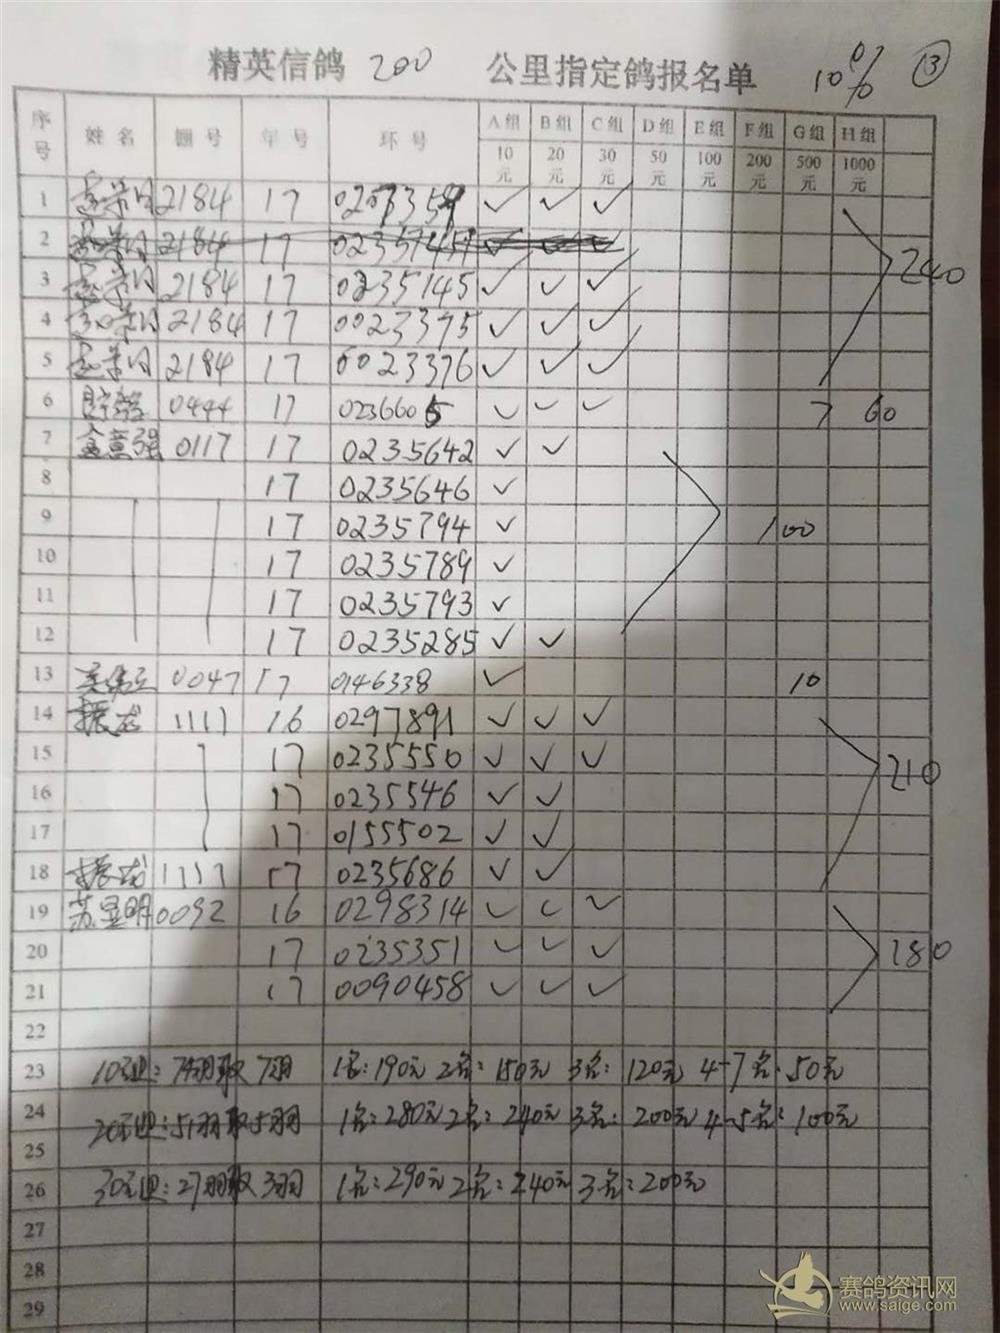 精英信鸽 200 公里指定鸽报名单 10% ⑬
序号 姓名 棚号 年号 环号 A组 B组 C组 D组 E组 F组 G组 H组
10元 20元 30元 50元 100元 200元 500元 1000元
1 2184 17 ✓ ✓ ✓
2 2184 17 ✓ ✓ ✓ 240
3 2184 17 0235145 ✓ ✓ ✓
4 2184 17 0023375 ✓ ✓ ✓
5 2184 17 0023376 ✓ ✓ ✓
6 0444 17 0236605 ✓ ✓ ✓ 60
7 金意强 0117 17 0235642 ✓ ✓
8 17 0235646 ✓
9 17 0235794 ✓ 100
10 17 0235789 ✓
11 17 0235793 ✓
12 17 0235285 ✓ ✓
13 0047 17 0146338 ✓ 10
14 振龙 1111 16 0297891 ✓ ✓ ✓
15 17 0235550 ✓ ✓ ✓ 210
16 17 0235546 ✓ ✓
17 17 0155502 ✓ ✓
18 振龙 1111 17 0235686 ✓ ✓
19 苏显明 0092 16 0298314 ✓ ✓ ✓
20 17 0235351 ✓ ✓ ✓ 180
21 17 0090458 ✓ ✓ ✓
22
23 10元组: 74羽取7羽 1名:190元 2名:150元 3名:120元 4-7名:50元
24 20元组:51羽取5羽 1名:280元 2名:240元 3名:200元 4-5名:100元
25
26 30元组:27羽取3羽 1名:290元 2名:240元 3名:200元
27
28
29
赛鸽资讯网
www.saige.com